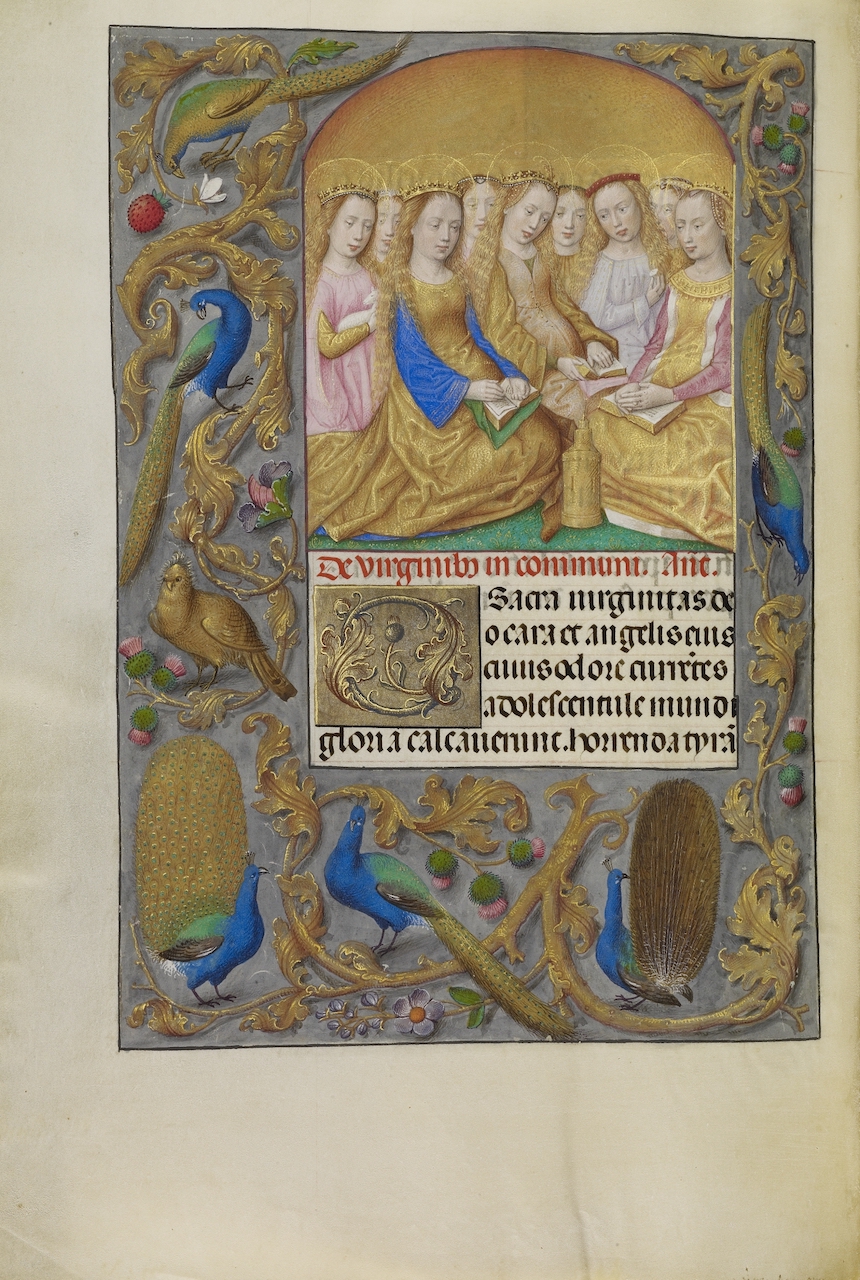 De virginibꝰ in communi. Añt.
O Sacra uirginitas de
o cara et angelis eius
cuius odore currẽtes
adolescentule mundi
gloria calcauerunt. horrenda tyrã